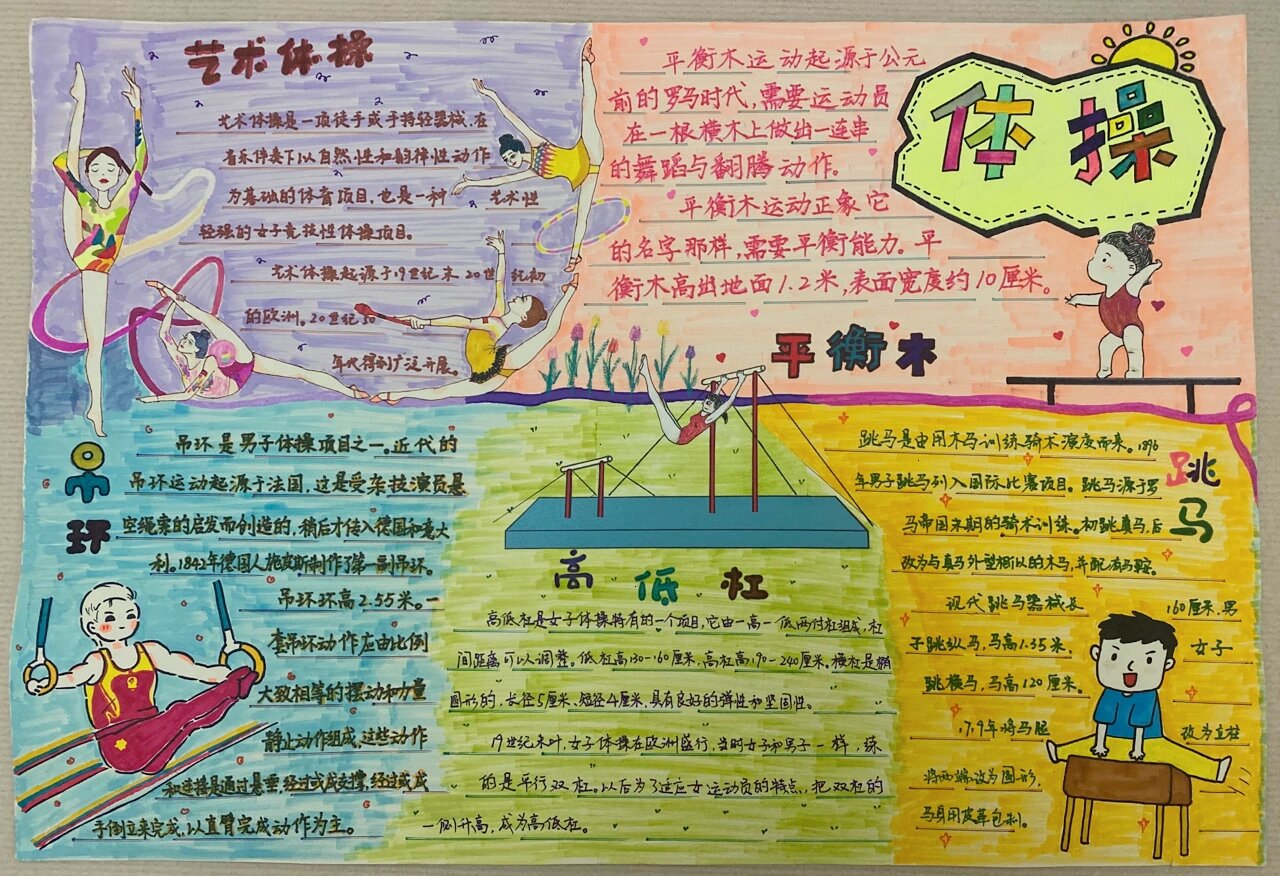 艺术体操
艺术体操是一项徒手或手持轻器械,在
音乐伴奏下以自然性和韵律性动作
为基础的体育项目,也是一种 艺术性
轻强的女子竞技性体操项目。
艺术体操起源于19世纪末20世纪初
的欧洲。20世纪50
年代得到广泛开展。
体操
平衡木运动起源于公元
前的罗马时代,需要运动员
在一根横木上做出一连串
的舞蹈与翻腾动作。
平衡木运动正象它
的名字那样,需要平衡能力。平
衡木高出地面1.2米,表面宽度约10厘米。
平衡木
吊环
吊环是男子体操项目之一。近代的
吊环运动起源于法国,这是受杂技演员悬
空绳索的启发而创造的,稍后才传入德国和意大
利。1842年德国人施皮斯制作了第一副吊环。
吊环环高2.55米。一
套吊环动作应由比例
大致相等的摆动和力量
静止动作组成,这些动作
和连接是通过悬垂,经过或成支撑,经过或成
手倒立来完成,以直臂完成动作为主。
高低杠
高低杠是女子体操特有的一个项目,它由一高一低两付杠组成,杠
间距离可以调整。低杠高130-160厘米,高杠高190-240厘米,横杠是椭
圆形的,长径5厘米、短径4厘米,具有良好的弹性和坚固性。
19世纪末叶,女子体操在欧洲盛行,当时女子和男子一样,练
的是平行双杠。以后为了适应女运动员的特点,把双杠的
一侧升高,成为高低杠。
跳马
跳马是由用木马训练骑术演变而来。1896
年男子跳马列入国际比赛项目。跳马源于罗
马帝国末期的骑术训练。初跳真马,后
改为与真马外型相似的木马,并配有马鞍。
现代跳马器械长 160厘米,男
子跳纵马,马高1.35米, 女子
跳横马,马高120厘米。
1719年将马腿 改为立柱
将两端改为圆形,
马身用皮革包制。